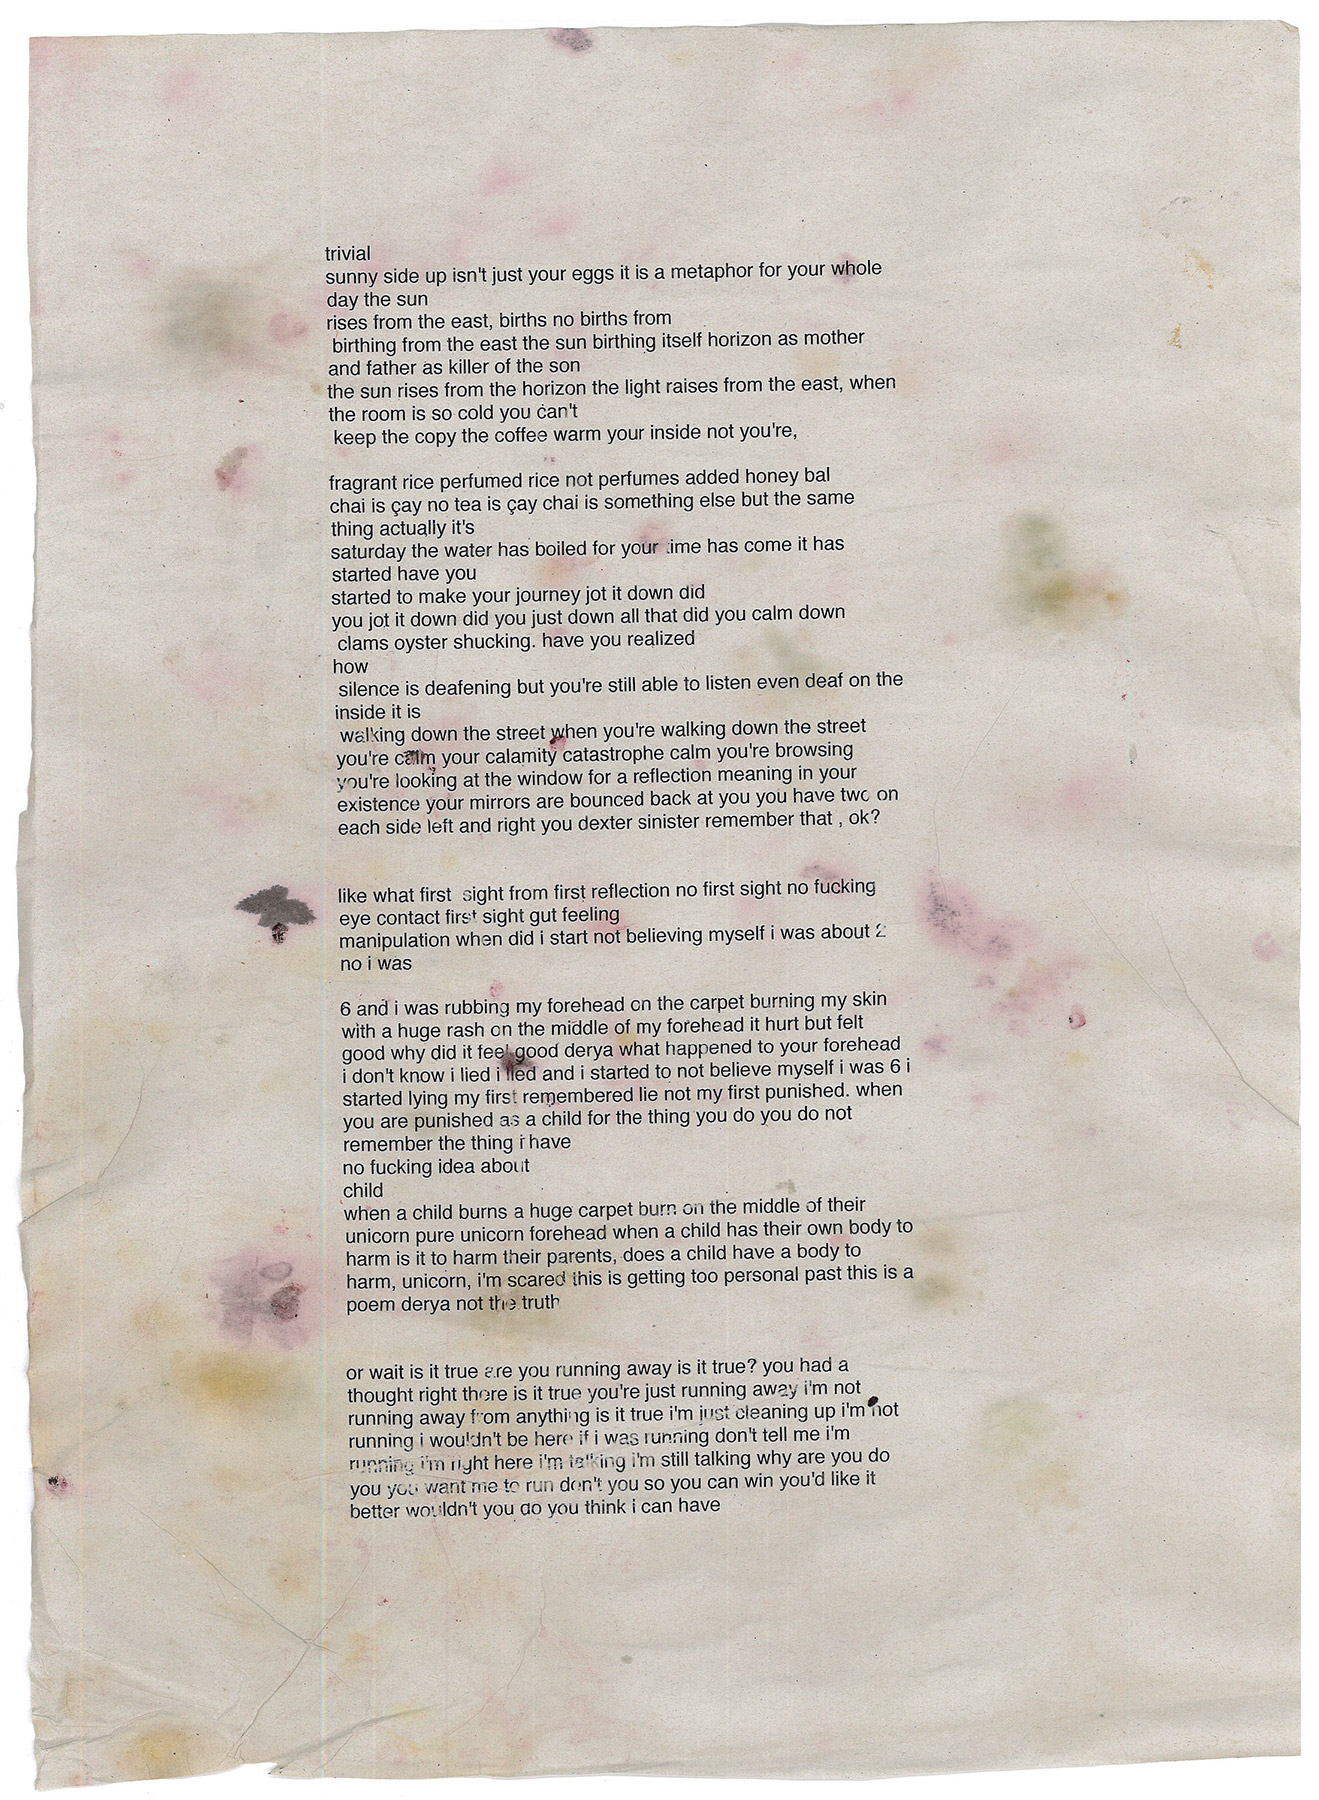 trivial
sunny side up isn't just your eggs it is a metaphor for your whole
day the sun
rises from the east, births no births from
birthing from the east the sun birthing itself horizon as mother
and father as killer of the son
the sun rises from the horizon the light raises from the east, when
the room is so cold you can't
keep the copy the coffee warm your inside not you're,
fragrant rice perfumed rice not perfumes added honey bal
chai is çay no tea is çay chai is something else but the same
thing actually it's
saturday the water has boiled for your time has come it has
started have you
started to make your journey jot it down did
you jot it down did you just down all that did you calm down
clams oyster shucking. have you realized
how
silence is deafening but you're still able to listen even deaf on the
inside it is
walking down the street when you're walking down the street
you're calm your calamity catastrophe calm you're browsing
you're looking at the window for a reflection meaning in your
existence your mirrors are bounced back at you you have two on
each side left and right you dexter sinister remember that , ok?
like what first sight from first reflection no first sight no fucking
eye contact first sight gut feeling
manipulation when did i start not believing myself i was about 2
no i was
6 and i was rubbing my forehead on the carpet burning my skin
with a huge rash on the middle of my forehead it hurt but felt
good why did it feel good derya what happened to your forehead
i don't know i lied i lied and i started to not believe myself i was 6 i
started lying my first remembered lie not my first punished. when
you are punished as a child for the thing you do you do not
remember the thing i have
no fucking idea about
child
when a child burns a huge carpet burn on the middle of their
unicorn pure unicorn forehead when a child has their own body to
harm is it to harm their parents, does a child have a body to
harm, unicorn, i'm scared this is getting too personal past this is a
poem derya not the truth
or wait is it true are you running away is it true? you had a
thought right there is it true you're just running away i'm not
running away from anything is it true i'm just cleaning up i'm not
running i wouldn't be here if i was running don't tell me i'm
running i'm right here i'm talking i'm still talking why are you do
you you want me to run don't you so you can win you'd like it
better wouldn't you do you think i can have